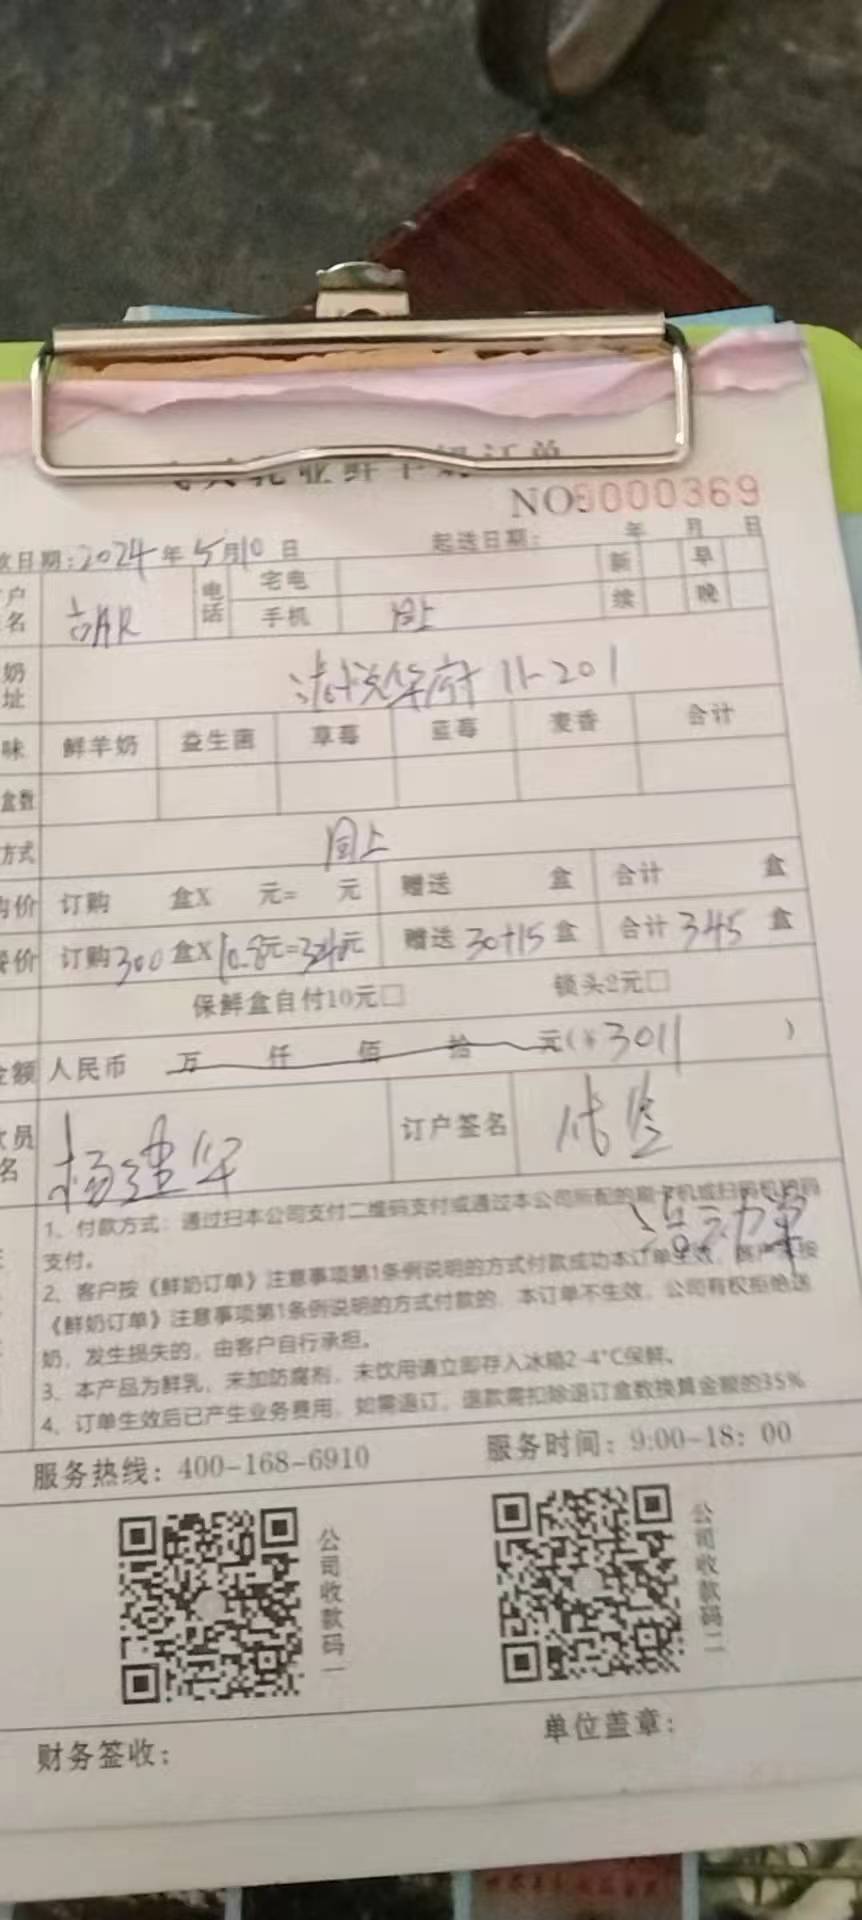 乳业鲜羊奶订单
NO 0000369
日期:2024年5月10日 起送日期: 年 月 日
户 电话 宅电 新 早
名 胡 手机 同上 续 晚
奶
址 华府 11-201
味 鲜羊奶 益生菌 草莓 蓝莓 麦香 合计
盒数
方式 同上
价 订购 盒X 元= 元 赠送 盒 合计 盒
价 订购300盒X10.8元=3240元 赠送30+15盒 合计345盒
保鲜盒自付10元□ 锁头2元□
金额 人民币 万 仟 佰 拾 元(¥3011 )
员
名 杨建华 订户签名 代签
1、付款方式:通过扫本公司支付二维码支付或通过本公司所配的刷卡机或扫码机扫码
支付。
2、客户按《鲜奶订单》注意事项第1条例说明的方式付款成功本订单生效,客户未按
《鲜奶订单》注意事项第1条例说明的方式付款的,本订单不生效,公司有权拒绝送
奶,发生损失的,由客户自行承担。
3、本产品为鲜乳,未加防腐剂,未饮用请立即存入冰箱2-4°C保鲜。
4、订单生效后已产生业务费用,如需退订,退款需扣除退订盒数换算金额的35%
服务热线:400-168-6910 服务时间:9:00-18:00
公司收款码一 公司收款码二
财务签收: 单位盖章: